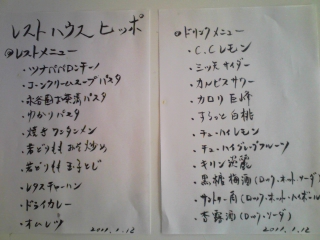 レストハウス ヒッポ
@レストメニュー
・ツナペペロンチーノ
・コーンクリームスープパスタ
・永谷園お茶漬パスタ
・ゆかりパスタ
・焼きワンタンメン
・若どり材 みそ炒め
・若どり材 玉子とじ
・レタスチャーハン
・ドライカレー
・オムレツ
2011.1.12
@ドリンクメニュー
・C.Cレモン
・三ツ矢サイダー
・カルピスサワー
・カロリ 巨峰
・すらっと 白桃
・チューハイレモン
・チューハイグレープフルーツ
・キリン 淡麗
・黒糖梅酒(ロック・ホット・ソーダ)
・サントリー角(ロック・ホット・ハイボール)
・杏露酒(ロック・ソーダ)
2011.1.12